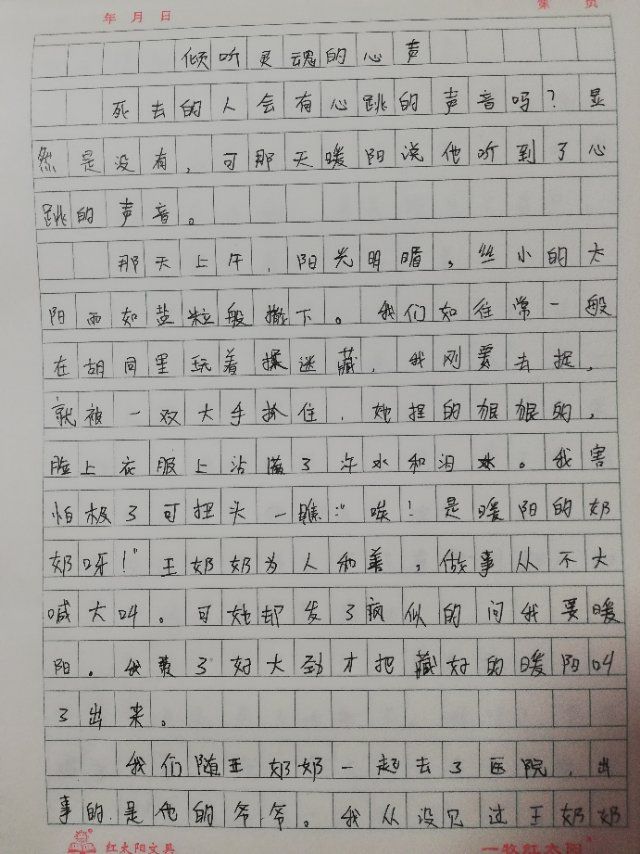 年 月 日
第 页
倾听灵魂的心声
死去的人会有心跳的声音吗?显
然是没有,可那天暖阳说他听到了心
跳的声音。
那天上午,阳光明媚,丝小的太
阳雨如盐粒般撒下。我们如往常一般
在胡同里玩着捉迷藏,我刚要去捉,
就被一双大手抓住,她捏的狠狠的,
脸上衣服上沾满了汗水和泪水。我害
怕极了可扭头一瞧:“唉!是暖阳的奶
奶呀!”王奶奶为人和善,做事从不大
喊大叫。可她却发了疯似的问我要暖
阳。我费了好大劲才把藏好的暖阳叫
了出来。
我们随王奶奶一起去了医院,出
事的是他的爷爷。我从没见过王奶奶
红太阳文具
一牧红太阳